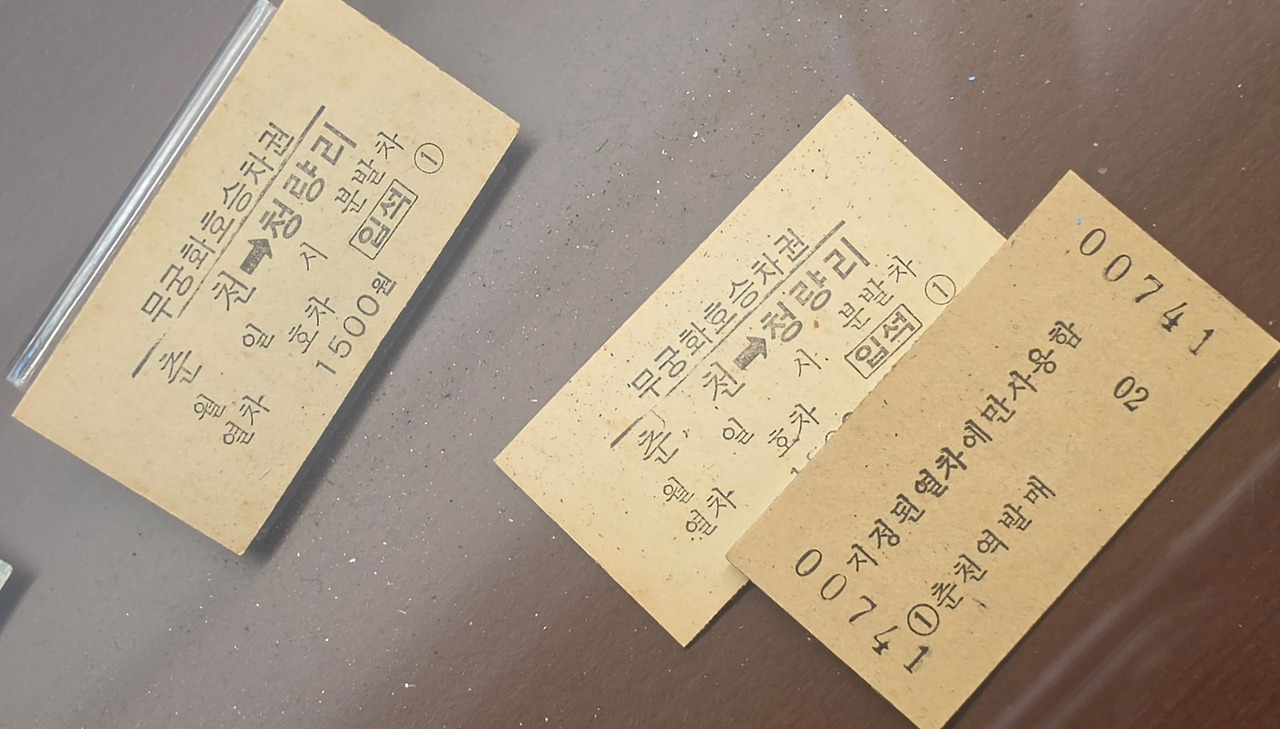 무궁화호승차권
춘 천➡청량리
월 일 시 분발차
열차 호차 입석 ①
1500원
무궁화호승차권
춘 천➡청량리
월 일 시 분발차
열차 호차 입석 ①
00741
지정된열차에만사용함
02
①춘천역발매
00741